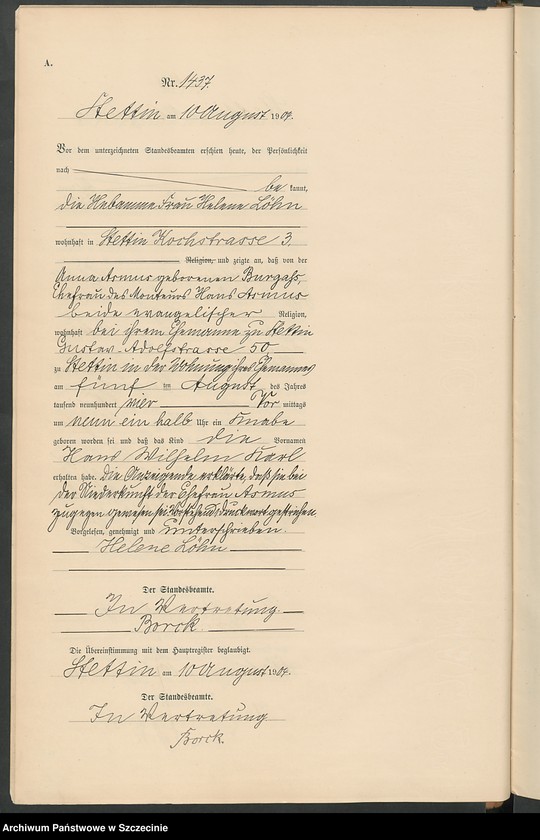 A.
Nr. 1437.
Stettin am 10 August 1904.
Vor dem unterzeichneten Standesbeamten erschien heute, der Persönlichkeit
nach
be kannt,
die Hebamme Frau Helene Löhn
wohnhaft in Stettin Kochstrasse 3,
Religion, und zeigte an, daß von der
Anna Asmus geborenen Burgahs,
Ehefrau des Monteurs Hans Asmus
beide evangelischer Religion,
wohnhaft bei ihrem Ehemanne zu Stettin
Gustav-Adolfstrasse 50
zu Stettin in der Wohnung ihres Ehemannes
am fünf ten August des Jahres
tausend neunhundert vier Vor mittags
um neun ein halb Uhr ein Knabe
geboren worden sei und daß das Kind die Vornamen
Hans Wilhelm Karl
erhalten habe. Die Anzeigende erklärte, daß sie bei
der Niederkunft der Ehefrau Asmus
zugegen gewesen sei. Vorstehend 1 Druckwort gestrichen.
Vorgelesen, genehmigt und unterschrieben.
Helene Löhn
Der Standesbeamte.
In Vertretung
Borck.
Die Übereinstimmung mit dem Hauptregister beglaubigt.
Stettin am 10 August 1904.
Der Standesbeamte.
In Vertretung
Borck.
Archiwum Państwowe w Szczecinie